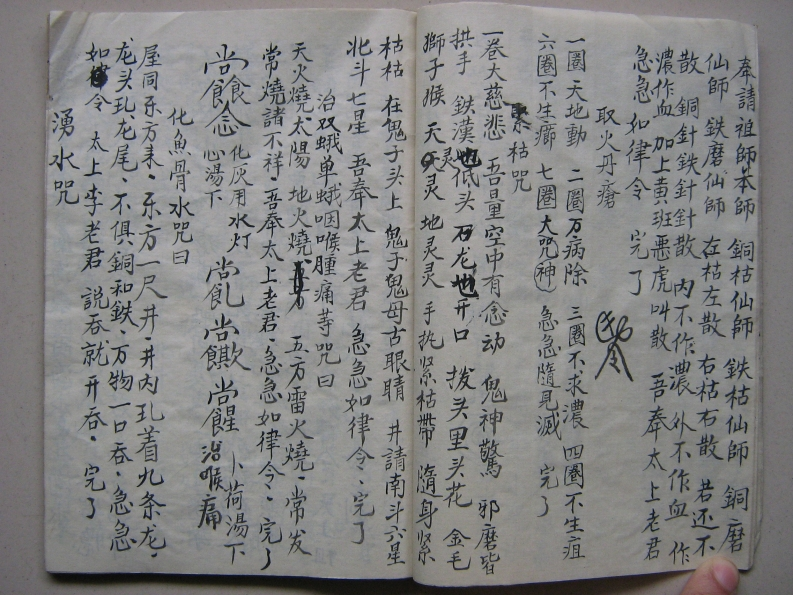 奉請祖師本師 銅枯仙師 鉄枯仙師 銅磨
仙師 鉄磨仙師 左枯左散 右枯右散 若还不
散 銅針鉄針針散 内不作濃 外不作血 作
濃作血 加上黄班悪虎叫散 吾奉太上老君
急急 如律令 完了
取火丹瘡
一圈天地動 二圈万病除 三圈不求濃 四圈不生疽
六圈不生癤 七圈大咒神 急急隨見滅 完了
枯咒
一卷大慈悲 吾量空中有念动 鬼神驚 邪磨皆
拱手 鉄漢也低头 石龙也开口 拨头里头花 金毛
獅子猴 天灵灵 地灵灵 手执緊枯帶 隨身緊
枯枯 在鬼子头上 鬼子鬼母古眼睛 井請南斗六星
北斗七星 吾奉太上老君 急急如律令、完了
治双蛾单蛾咽喉腫痛等咒曰
天火燒、太陽 地火燒、五方 五方雷火燒、常发
常燒諸不祥、吾奉太上老君、急急如律令、完了
念 心湯下 化灰用水灯 卜荷湯下 治喉痛
化魚骨水咒曰
屋同东方来、东方一尺井、井内乱着九条龙、
龙头乱龙尾、不俱銅和鉄、万物一口吞、急急
如律令 太上李老君 説吞就开吞、完了
湧水咒